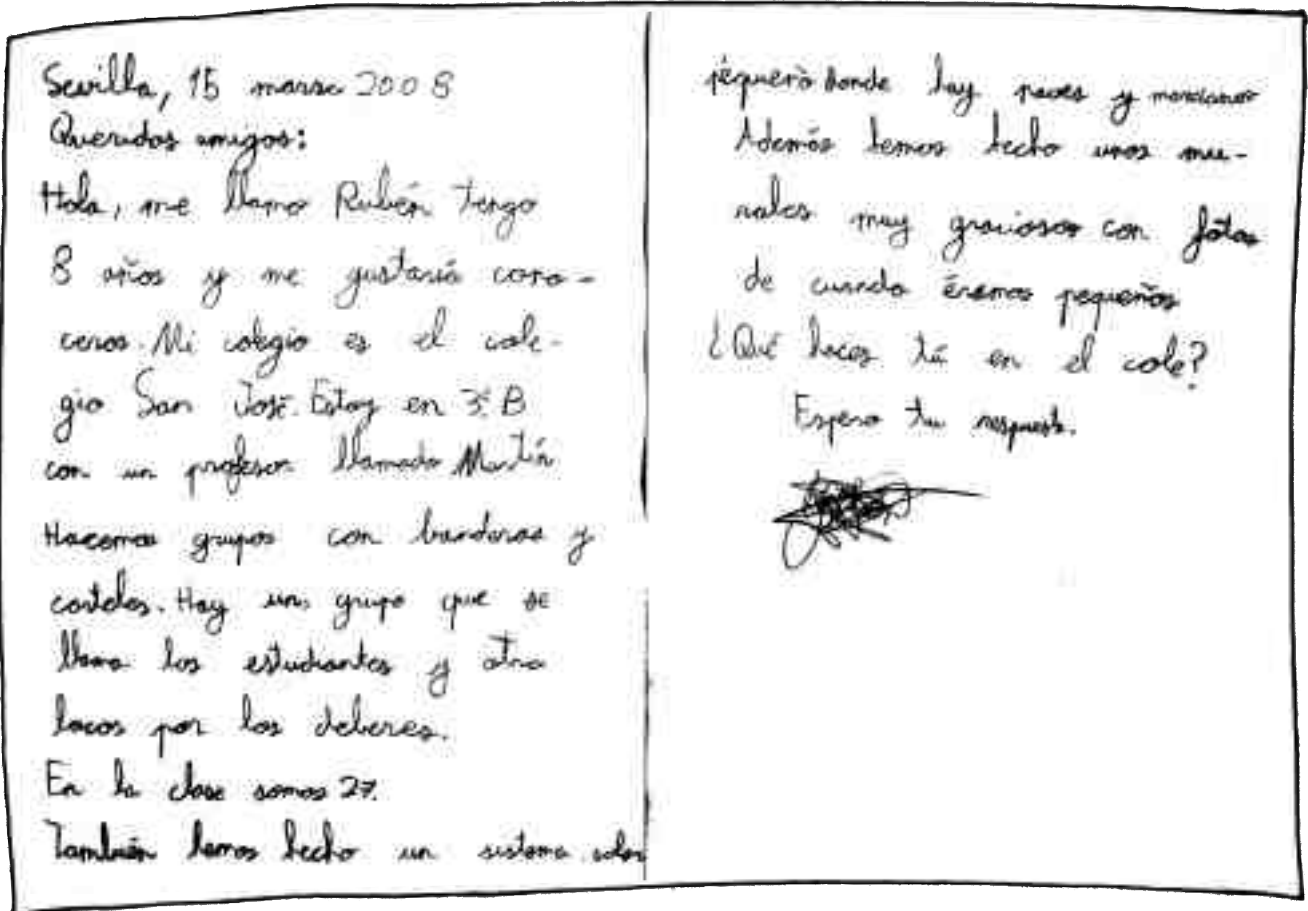 Sevilla, 15 marzo 2008
Queridos amigos:
Hola, me llamo Rubén tengo
8 años y me gustaría cono-
ceros. Mi colegio es el cole-
gio San José. Estoy en 3º B
con un profesor llamado Martín
Hacemos grupos con banderas y
carteles. Hay un grupo que se
llama los estudiantes y otro
locos por los deberes.
En la clase somos 27.
También hemos hecho un sistema solar
péqueño donde hay naves y marcianos
Además hemos hecho unos mu-
rales muy graciosos con fotos
de cuando éramos pequeños
¿Qué haces tú en el cole?
Espero tu respuesta.